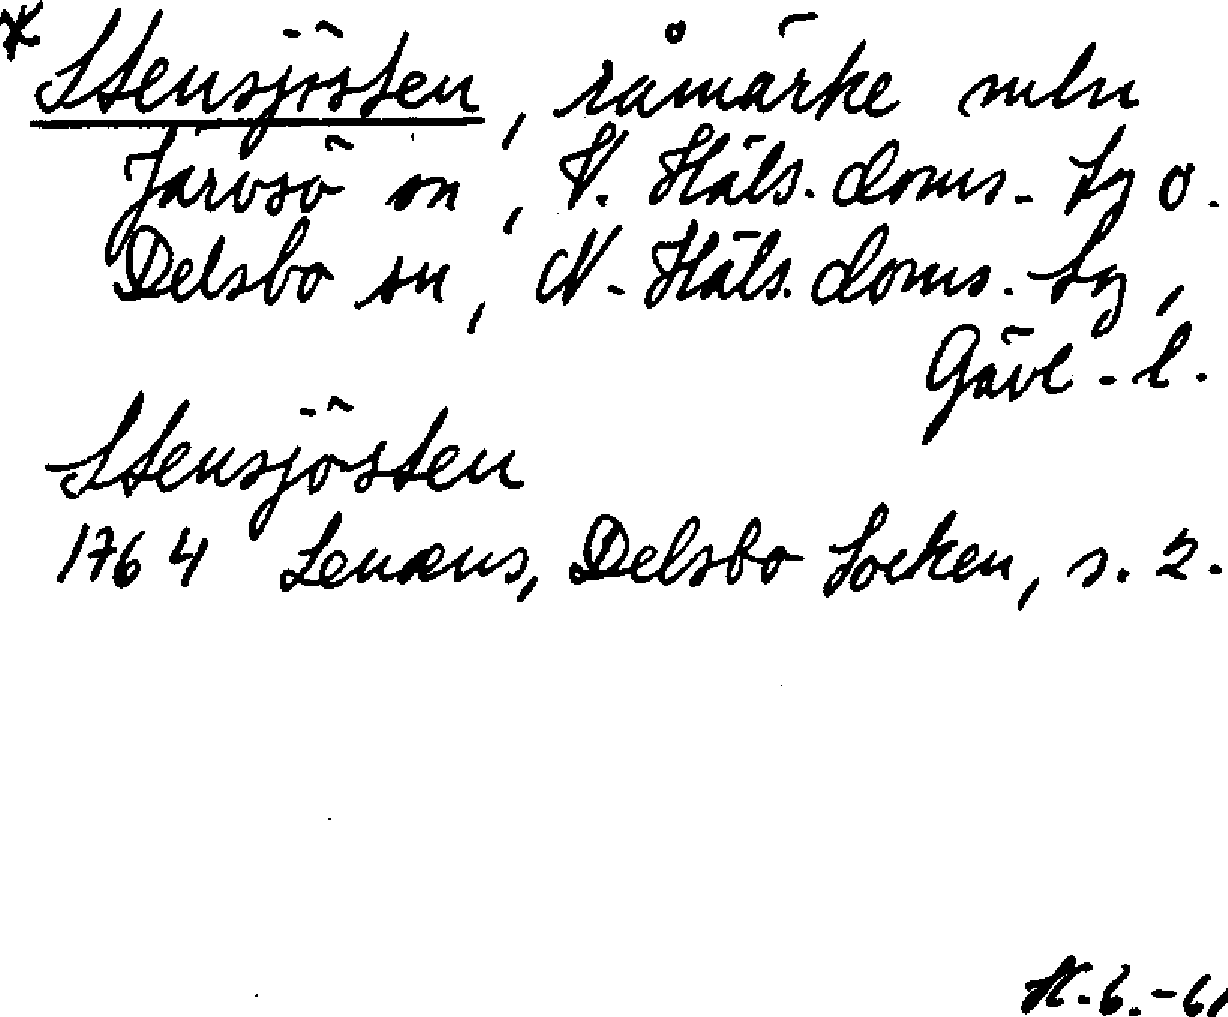 * Stensjösten, råmärke mln
Järvsö sn, V. Häls. doms. tg o.
Delsbo sn, N. Häls. doms. tg,
Gävl. l.
Stensjösten
1764 Lenæus, Delsbo Socken, s. 2.